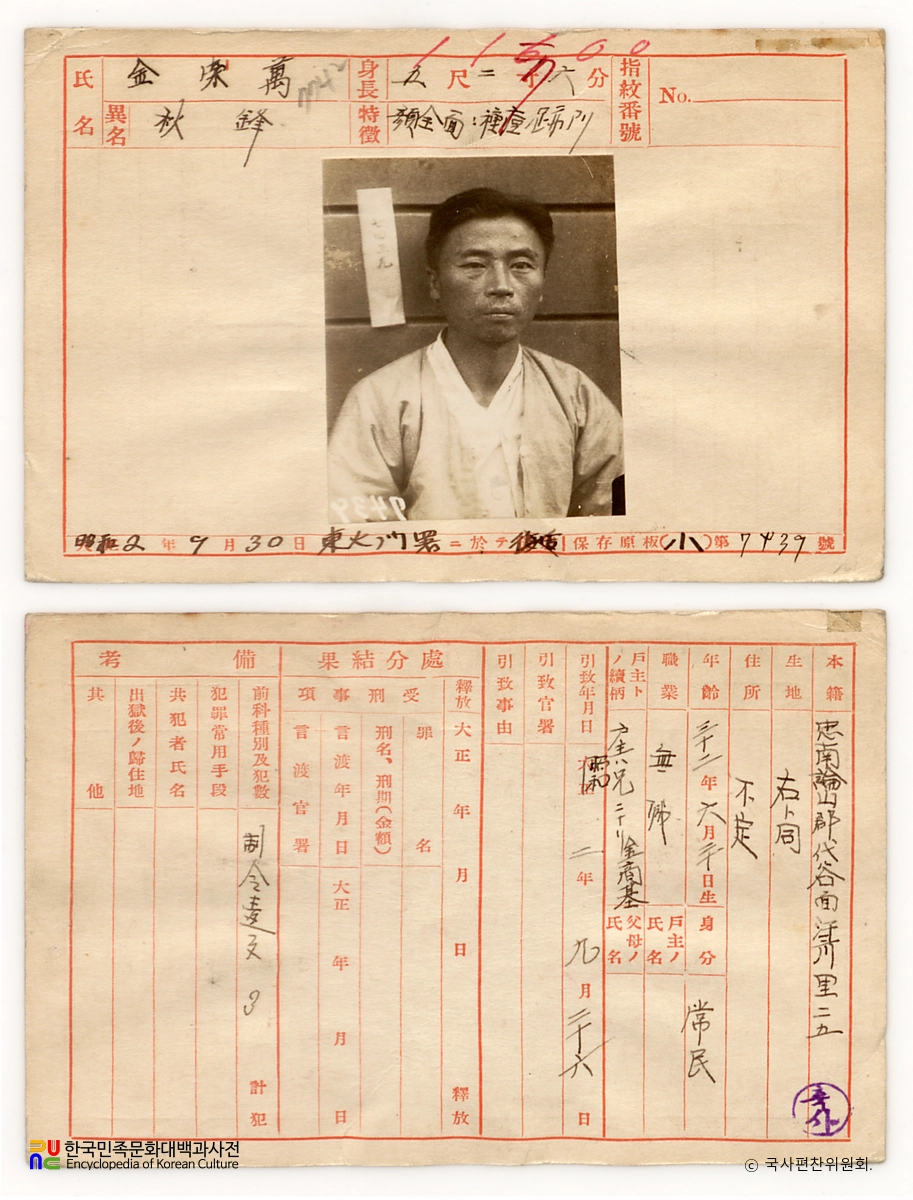 氏名
金 榮 萬
異名
秋 鋒
身長
五 尺 二 寸 六 分
特徵
指紋番號
No.
七四三九
7439
昭和 2 年 9 月 30 日 東大門署 ニ 於テ 複寫 保存原板(小)第 7439 號
本籍
忠南論山郡代谷面汗川里二五
生地
右ト同
住所
不定
年齡
三十二年六月二十日生
身分
常民
職業
無職
戶主ノ氏名
戶主トノ續柄
戶主ハ兄ニナリ金商基
父母ノ氏名
引致年月日
昭和 二年 九月 二十六日
引致官署
引致事由
處分結果
釋放 大正 年 月 日 釋放
受刑事項
罪名
刑名、刑期(金額)
言渡年月日 大正 年 月 日
言渡官署
備考
前科種別及犯數
制令違反 3
計 犯
犯罪常用手段
共犯者氏名
出獄後ノ歸住地
其他
한국민족문화대백과사전
Encyclopedia of Korean Culture
© 국사편찬위원회.